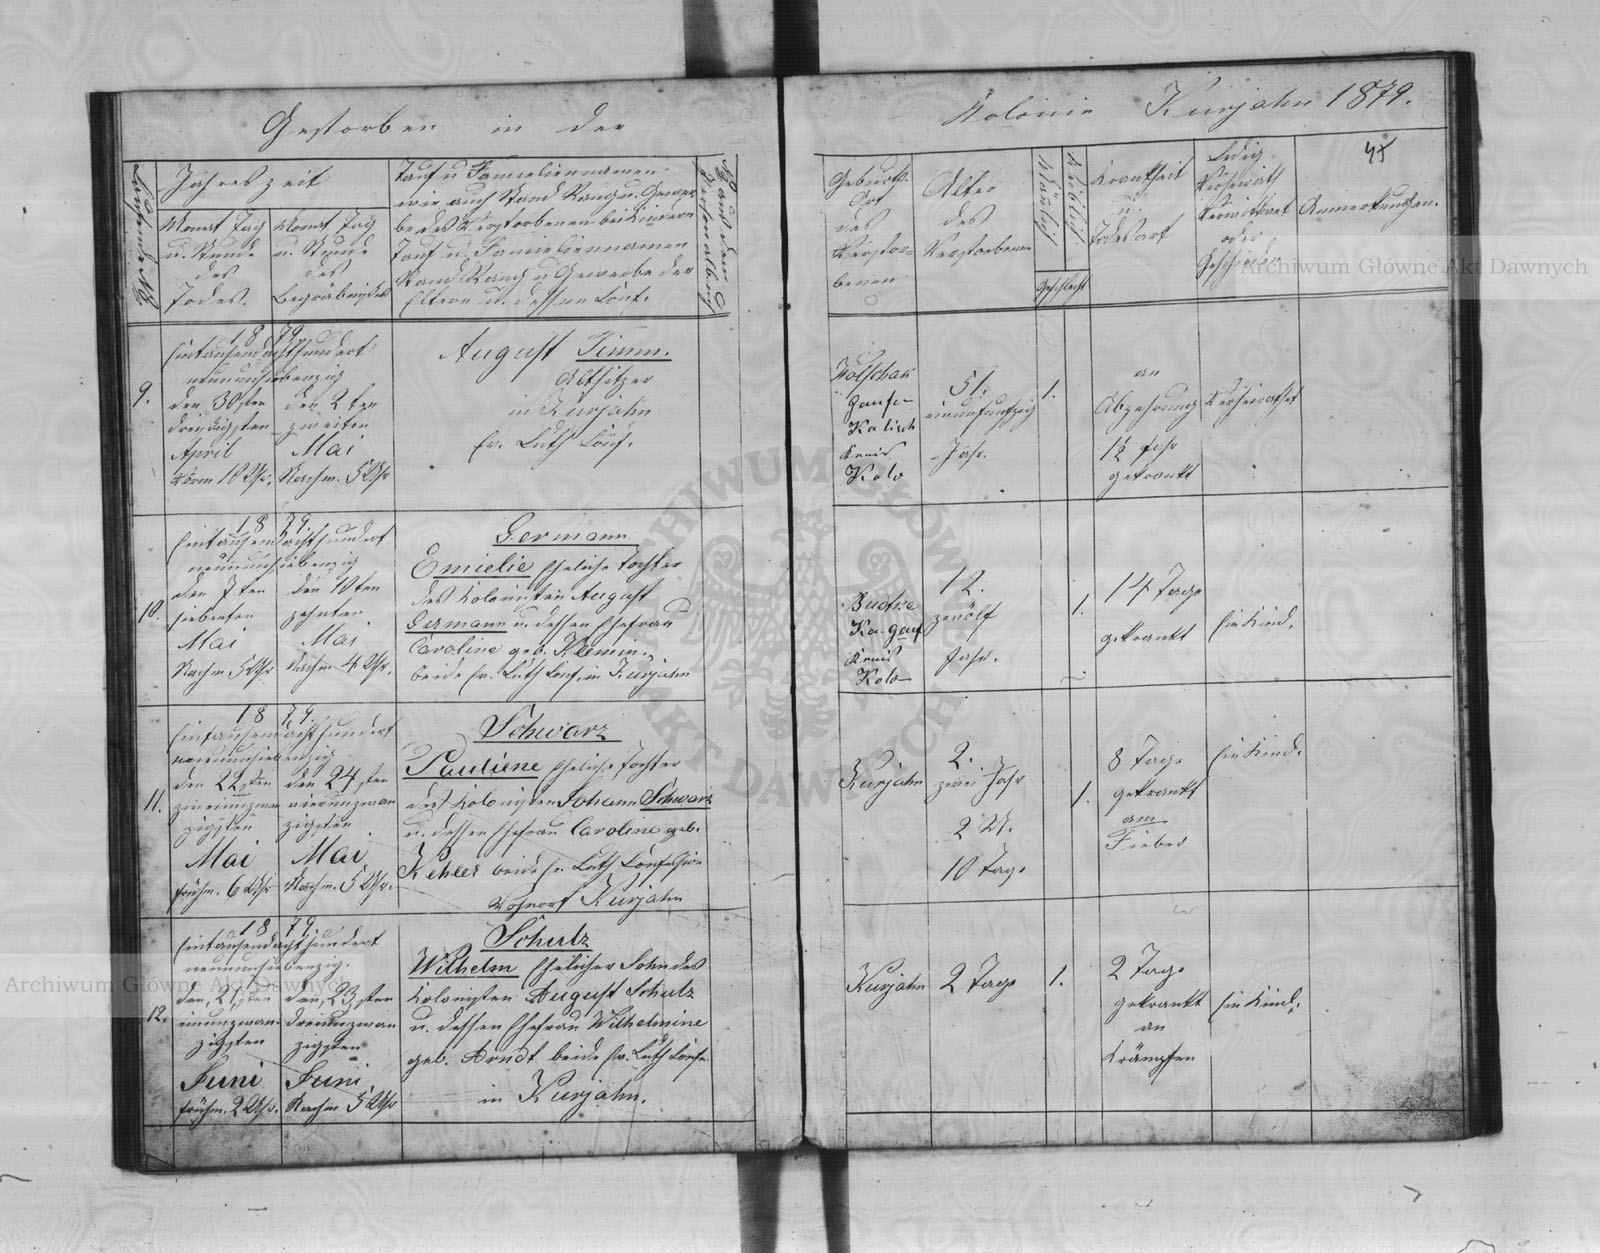 Gestorben in der
Kolonie Kurjahn 1879.
45
Laufende No
Jahreszeit
Monat Tag
u. Stunde
des
Todes.
Monat Tag
u. Stunde
des
Begräbnißes
Tauf u Familiennamen
wie auch Stand Rang u. Gewer
be des Verstorbenen bei Kindern
Tauf u. Familiennamen
Stand Rang u Gewerbe der
Eltern u. dessen Conf.
Geburts-
Ort
des
Verstor-
benen
Alter
des
Verstorbenen
Mänlich
Weiblich
Geschlecht
Krankheit
u.
Todesart
Ledig
Verheirath
Verwittwet
oder
Geschieden
Anmerkungen.
9.
1879
Eintausendachthundert
neunundsiebenzig
den 30sten
dreißigsten
April
Vorm 10 Uhr.
den 2ten
zweiten
Mai
Nachm. 5 Uhr
August Timm.
Altsitzer
in Kurjahn
Ev. Luth Conf.
Kalisch
Kreis
Kolo
51.
einundfunfzig
Jahr.
1.
an
Abzehrung
1½ Jahr
gekrankt
Verheirathet
10.
1879.
Eintausendachthundert
neunundsiebenzig
den 7ten
siebenten
Mai
Nachm 5 Uhr
den 10ten
zehnten
Mai
Nachm 4 Uhr.
Germann
Emielie Eheliche Tochter
des Kolonisten August
Germann u. dessen Ehefrau
Caroline geb. Klemin.
beide Ev. Luth Conf. in Kurjahn
Kreis
Kolo
12.
zwölf
Jahr.
1.
14 Tage
gekrankt
Ein Kind.
11.
1879.
Eintausendachthundert
neunundsiebenzig
den 22sten
zweiundzwan
zigsten
Mai
Frühm. 6 Uhr
den 24sten
vierundzwan
zigsten
Mai
Nachm. 5 Uhr.
Schwarz
Pauliene Eheliche Tochter
des Kolonisten Johann Schwarz
u. dessen Ehefrau Caroline geb.
Kehler beide Ev. Luth Confession
Wohnort Kurjahn
Kurjahn
2.
zwei Jahr
2 M.
10 Tage
1.
8 Tage
gekrankt
am
Fieber
Ein Kind.
12.
1879.
Eintausendachthundert
neunundsiebenzig.
den, 21sten
einundzwan-
zigsten
Juni
Frühm. 2 Uhr.
den, 23sten
dreiundzwan
zigsten
Juni
Nachm 5 Uhr
Schulz
Wilhelm Ehelicher Sohn des
Kolonisten August Schulz
u. dessen Ehefrau Wilhelmine
geb. Arndt beide Ev. Luth Conf.
in Kurjahn.
Kurjahn
2 Tage
1.
2 Tage
gekrankt
an
Krämpfen
Ein Kind.
Archiwum Główne Akt Dawnych
Archiwum Główne Akt Dawnych
ARCHIWUM GŁÓWNE AKT DAWNYCH